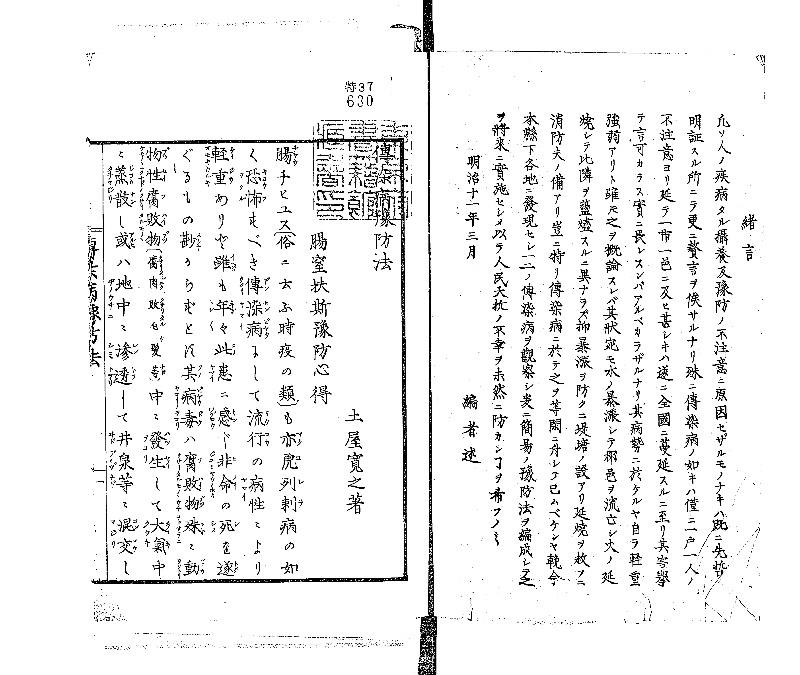 緒言
凡ソ人ノ疾病タル攝養及豫防ノ不注意ニ原因セザルモノナキハ既ニ先哲ノ
明証スル所ニラ更ニ贅言ヲ俟サルナリ殊ニ傳染病ノ如キハ僅ニ一戸一人ノ
不注意ヨリ延ラ一市一邑ニ及ヒ甚シキハ遂ニ全國ニ蔓延スルニ至リ其害擧
テ言可カラス實ニ畏レスンバアルベカラザルナリ其病勢ニ於ケルヤ自ラ軽重
強弱アリト雖モ之ヲ概論スレバ其狀宛モ水ノ暴漲シテ郷邑ヲ流亡シ火ノ延
焼シテ比隣ヲ盡燼スルニ異ナラズ抑暴漲ヲ防クニ堤塘ノ設アリ延焼ヲ救フニ
消防夫ノ備アリ豈ニ特リ傳染病ニ於テ之ヲ等閑ニ付シテ已ムベケンヤ輓今
本縣下各地ニ發現セシ一二ノ傳染病ヲ觀察シ爰ニ簡易ノ豫防法ヲ編成シテ之
ヲ將来ニ實施セシメ以ラ人民夭札ノ不幸ヲ未然ニ防カンヿヲ希フノミ
明治十一年三月
編者述
特37
630
傳染病豫防法
土屋寛之著
腸窒扶斯豫防心得
腸チヒユス俗ニ云ふ時疫の類も亦虎列剌病の如
く恐怖すべき傳染病にして流行の病性により
軽重ありと雖も年々此患ニ感し非命の死を遂
ぐるもの尠からずとす其病毒ハ腐敗物殊ニ動
物性腐敗物中ニ發生して大氣中
ニ蒸散し或ハ地中ニ滲透して井泉等ニ混交し
傳染病豫防法